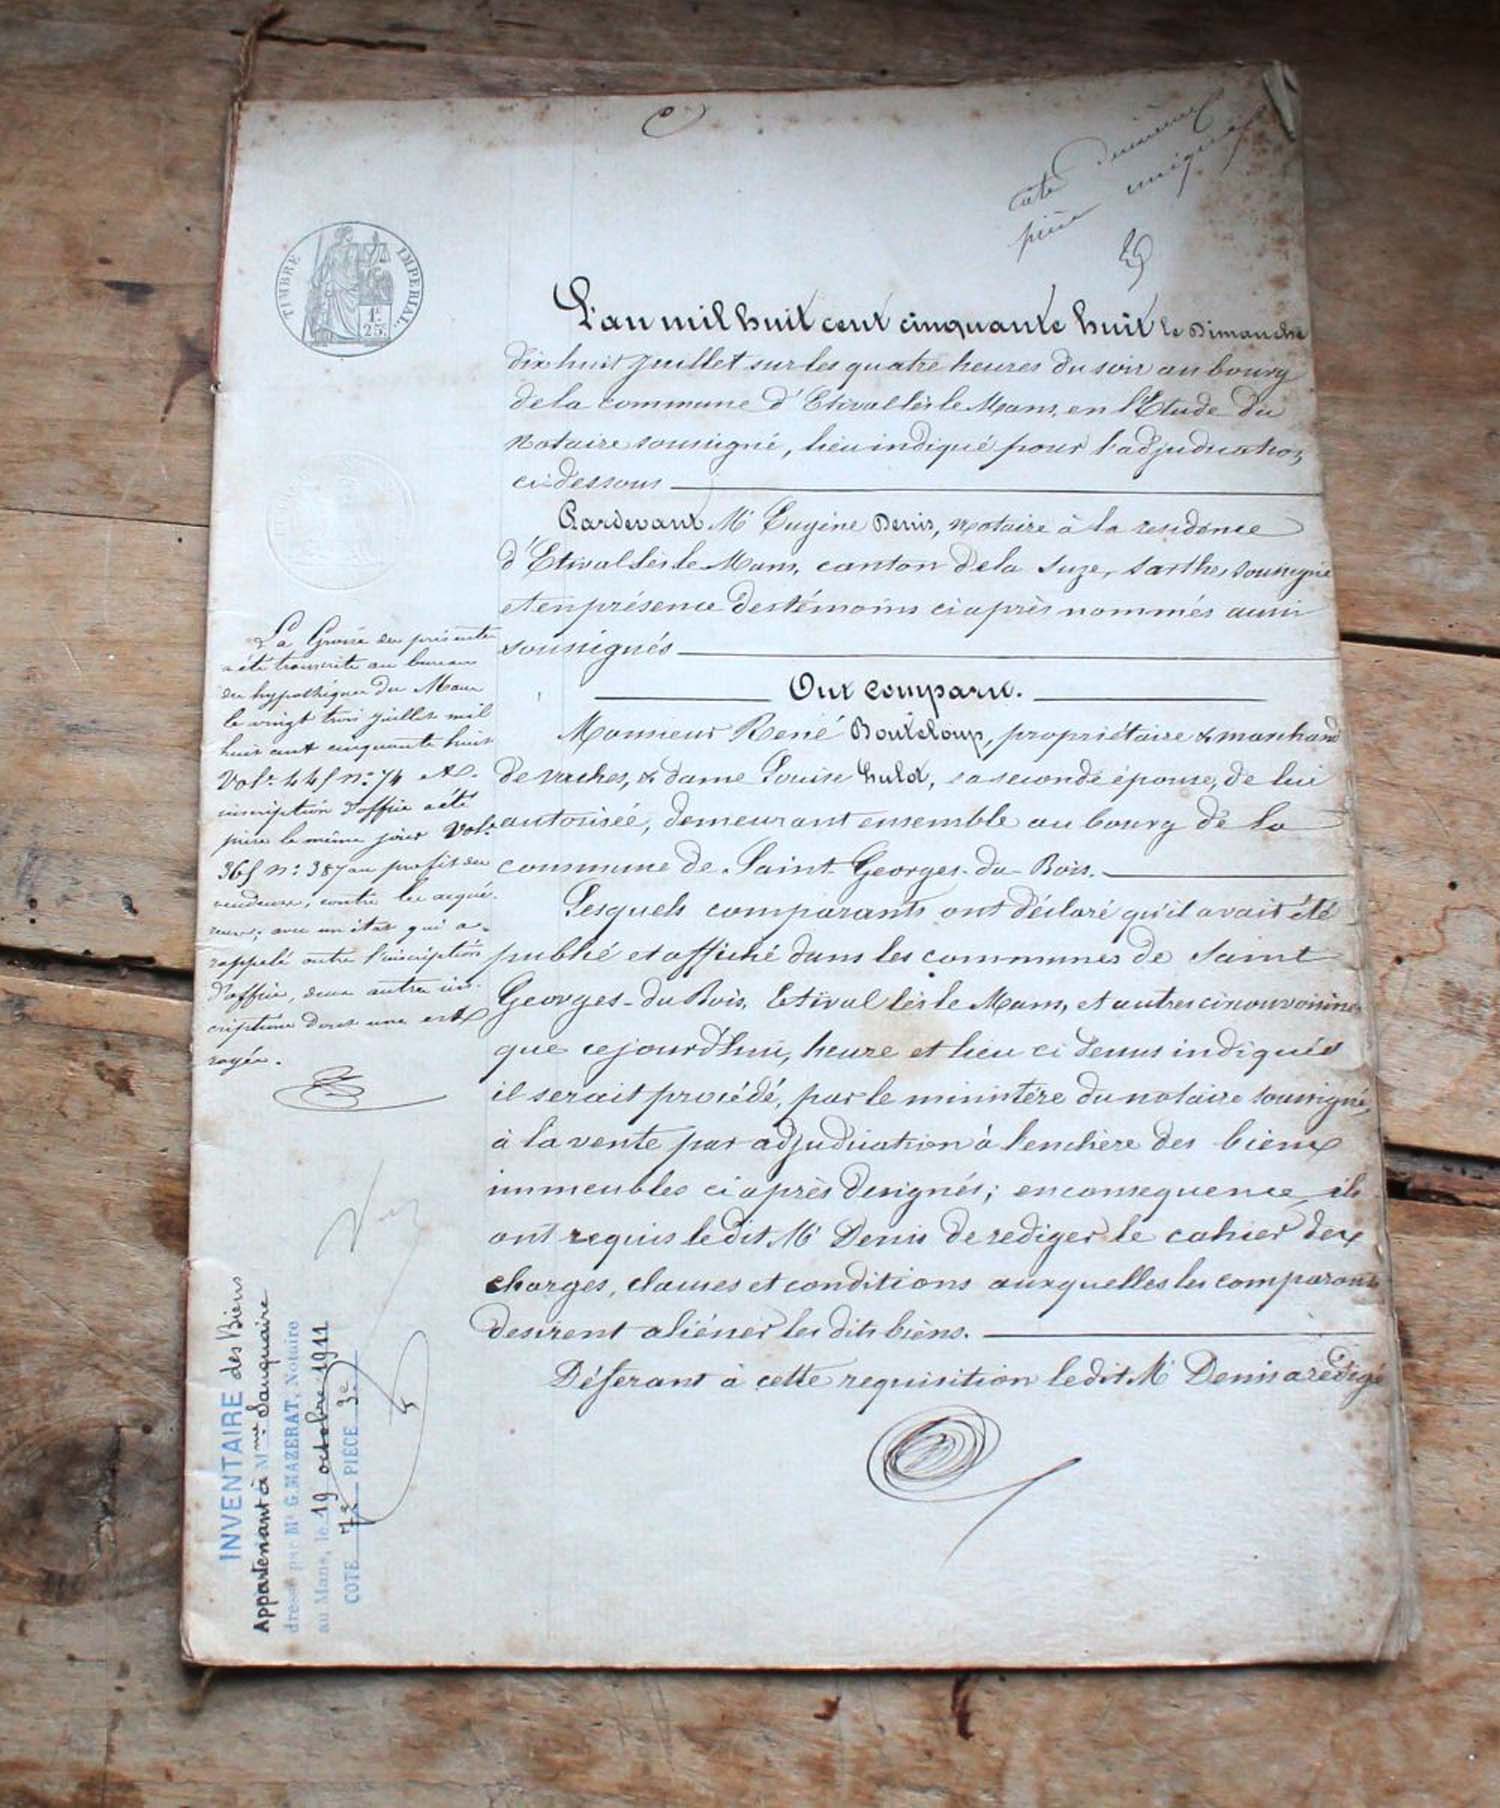 TIMBRE IMPERIAL.
1f.
25c
Cote
pièce unique
L'an mil huit cent cinquante huit le Dimanche
dix huit Juillet sur les quatre heures du soir au bourg
de la commune d'Etival lès le Mans, en l'Etude du
Notaire soussigné, lieu indiqué pour l'adjudication
ci dessous
Pardevant Me Eugène Denis, notaire à la residence
d'Etival lès le Mans, canton de la Suze, Sarthe, soussigné
et en présence des témoins ci après nommés aussi
soussignés
Ont comparu.
Monsieur René Bouteloup, propriétaire & marchand
de vaches, & dame Louise huld, sa seconde épouse, de lui
autorisée, demeurant ensemble au bourg de la
commune de Saint Georges-du-Bois.
Lesquels comparants ont déclaré qu'il avait été
publié et affiché dans les communes de Saint
Georges-du Bois, Etival lès le Mans, et autres circonvoisines
que cejourd'hui, heure et lieu ci dessus indiqués
il serait procédé, par le ministère du notaire soussigné,
à la vente par adjudication à l'enchère des biens
immeubles ci après designés; en consequence ils
ont requis ledit Me Denis de rediger le cahier des
charges, clauses et conditions auxquelles les comparants
desirent aliéner les dits biens.
Déferant à cette requisition ledit Me Denis a rédigé
La Grosse des présentes
a été transcrite au bureau
des hypothèques du Mans
le vingt trois juillet mil
huit cent cinquante huit
Vol. 445 no. 74 et
inscription d'office a été
prise le même jour Vol.
365 no. 387 au profit des
vendeurs, contre les acqué-
reurs; avec un état qui a
rappelé outre l'inscription
d'office, deux autres ins-
criptions dont une est
rayée.
INVENTAIRE des Biens
Appartenant à Mme Sauquaire
dressé par Me G. MAZERAT, Notaire
au Mans, le 19 octobre 1911
COTE 7e PIECE 3e